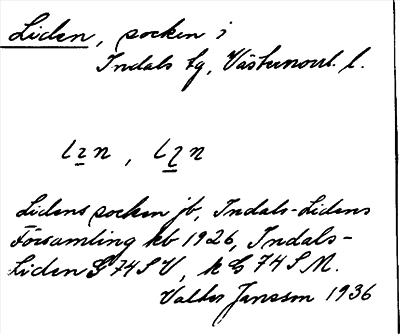 Liden, socken i
Indals tg, Västernorrl. l.
Lidens socken jb, Indals-Lidens
Församling kb 1926, Indals-
Liden G 74 S V, k G 74 S M.
Valter Jansson 1936